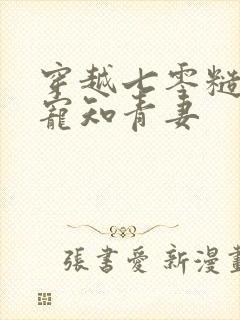 穿越七零糙
寵知青妻
張書愛 新漫畫